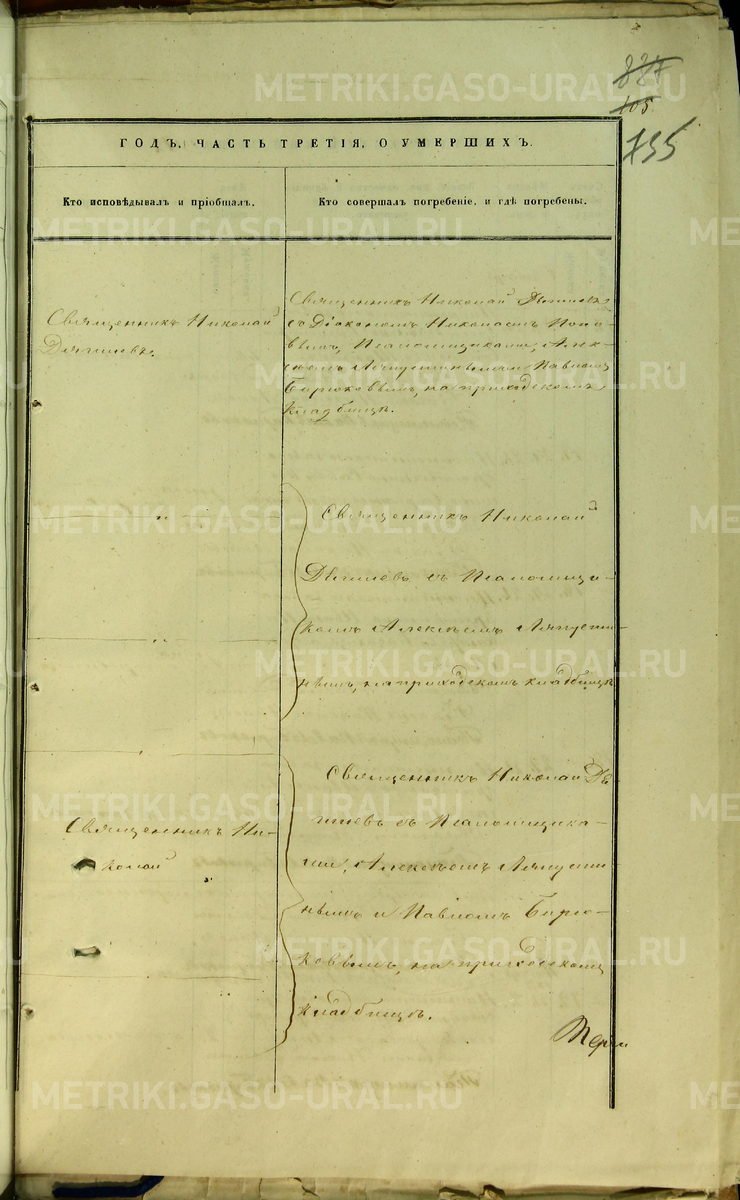 887
105
755
ГОДЪ, ЧАСТЬ ТРЕТІЯ, О УМЕРШИХЪ.
Кто исповѣдывалъ и пріобщалъ.
Кто совершалъ погребеніе, и гдѣ погребены.
Священникъ Николай
Священникъ Николай
съ Діакономъ Николаемъ Попо-
вымъ, Псаломщиками, Алек-
сѣемъ Ляпустинымъ и Павломъ
Бирюковымъ, на приходскомъ
кладбищѣ.
„
Священникъ Николай
съ Псаломщи-
комъ Алексѣемъ Ляпусти-
нымъ, на приходскомъ кладбищѣ
„
Священникъ Ни-
колай
„
Священникъ Николай
съ Псаломщика-
ми, Алексѣемъ Ляпусти-
нымъ и Павломъ Бирю-
ковымъ, на приходскомъ
кладбищѣ.
METRIKI.GASO-URAL.RU